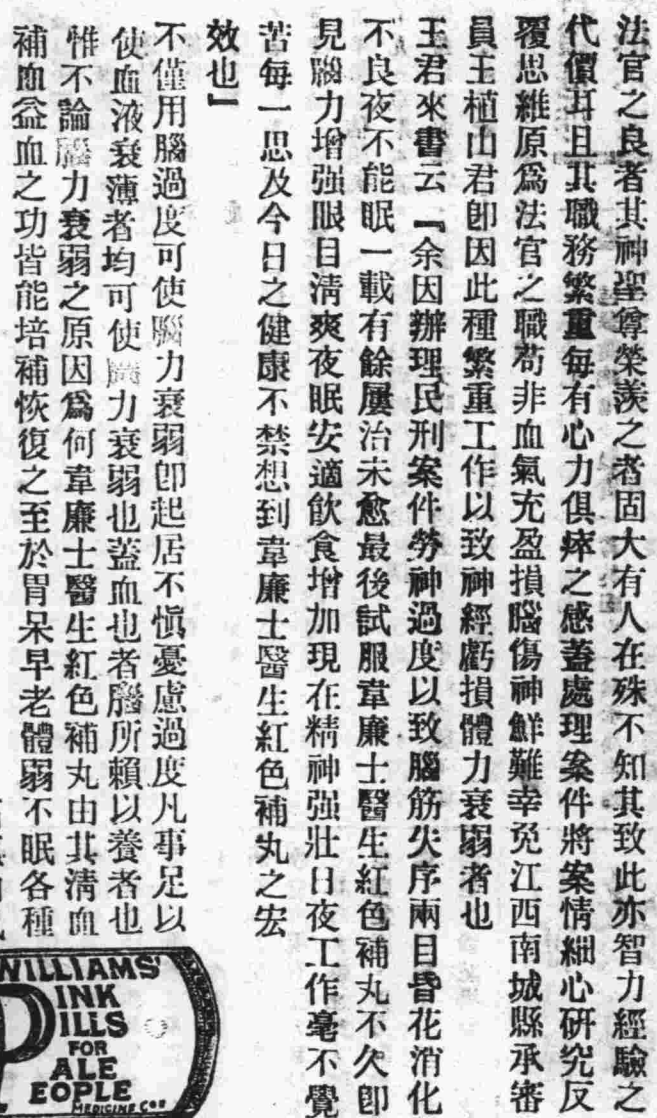 法官之良者其神聖尊榮羨之者固大有人在殊不知其致此亦智力經驗之
代價耳且其職務繁重每有心力俱瘁之感蓋處理案件將案情細心研究反
覆思維原爲法官之職苟非血氣充盈損腦傷神鮮難幸免江西南城縣承審
員王植山君卽因此種繁重工作以致神經虧損體力衰弱者也
王君來書云『余因辦理民刑案件勞神過度以致腦筋失序兩目昏花消化
不良夜不能眠一載有餘屢治未愈最後試服韋廉士醫生紅色補丸不久卽
見腦力增强眼目淸爽夜眠安適飮食增加現在精神强壯日夜工作毫不覺
苦每一思及今日之健康不禁想到韋廉士醫生紅色補丸之宏
效也』
不僅用腦過度可使腦力衰弱卽起居不慎憂慮過度凡事足以
使血液衰薄者均可使腦力衰弱也蓋血也者腦所賴以養者也
惟不論腦力衰弱之原因爲何韋廉士醫生紅色補丸由其淸血
補血益血之功皆能培補恢復之至於胃呆早老體弱不眠各種
WILLIAMS'
PINK
PILLS
FOR
ALE
EOPLE
MEDICINE Co.